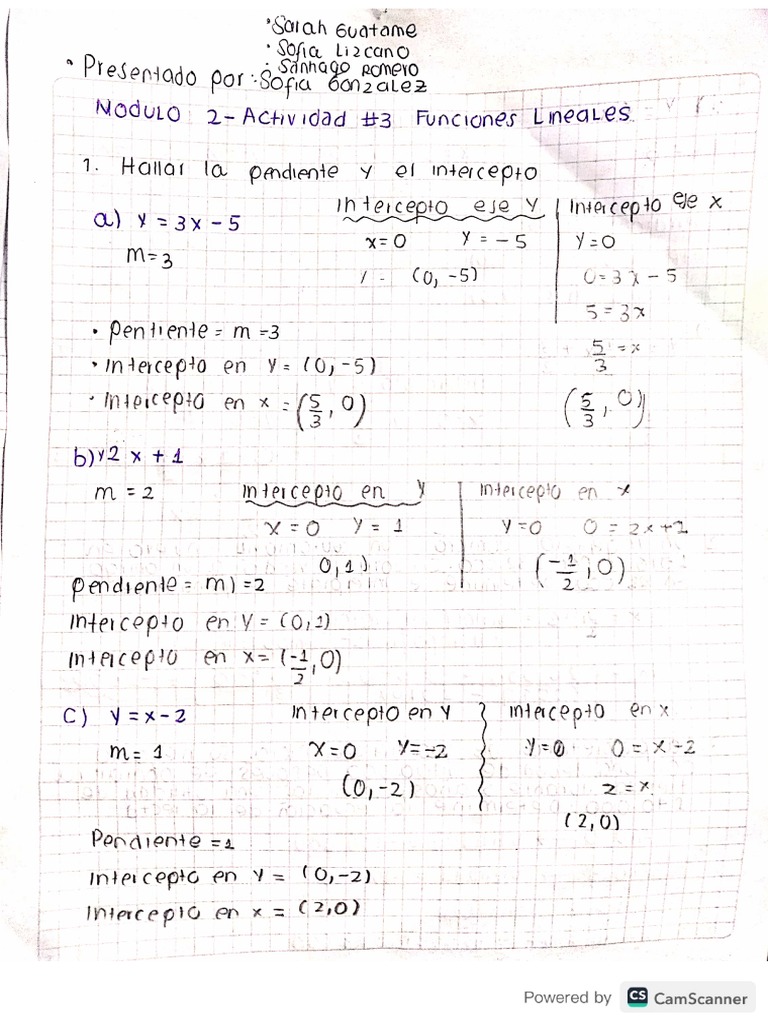 • Sarah Guatame
• Sofia Lizcano
• Santiago Romero
• Presentado por: Sofia Gonzalez
Modulo 2 - Actividad #3 Funciones Lineales
1. Hallar la pendiente y el intercepto
a) y = 3x - 5
m = 3
Intercepto eje y
x = 0 y = -5
(0, -5)
Intercepto eje x
y = 0
0 = 3x - 5
5 = 3x
5/3 = x
(5/3, 0)
• pentiente = m = 3
• intercepto en y = (0, -5)
• Intercepto en x = (5/3, 0)
b) y2 x + 1
m = 2
intercepto en y
x = 0 y = 1
0,1)
Intercepto en x
y = 0 0 = 2x+2
(-1/2, 0)
pendiente = m) = 2
Intercepto en y = (0,1)
Intercepto en x = (-1/2, 0)
c) y = x - 2
m = 1
Intercepto en y
x = 0 y = -2
(0, -2)
Intercepto en x
y = 0 0 = x - 2
2 = x
(2,0)
Pendiente = 1
Intercepto en y = (0, -2)
Intercepto en x = (2,0)
Powered by CS CamScanner